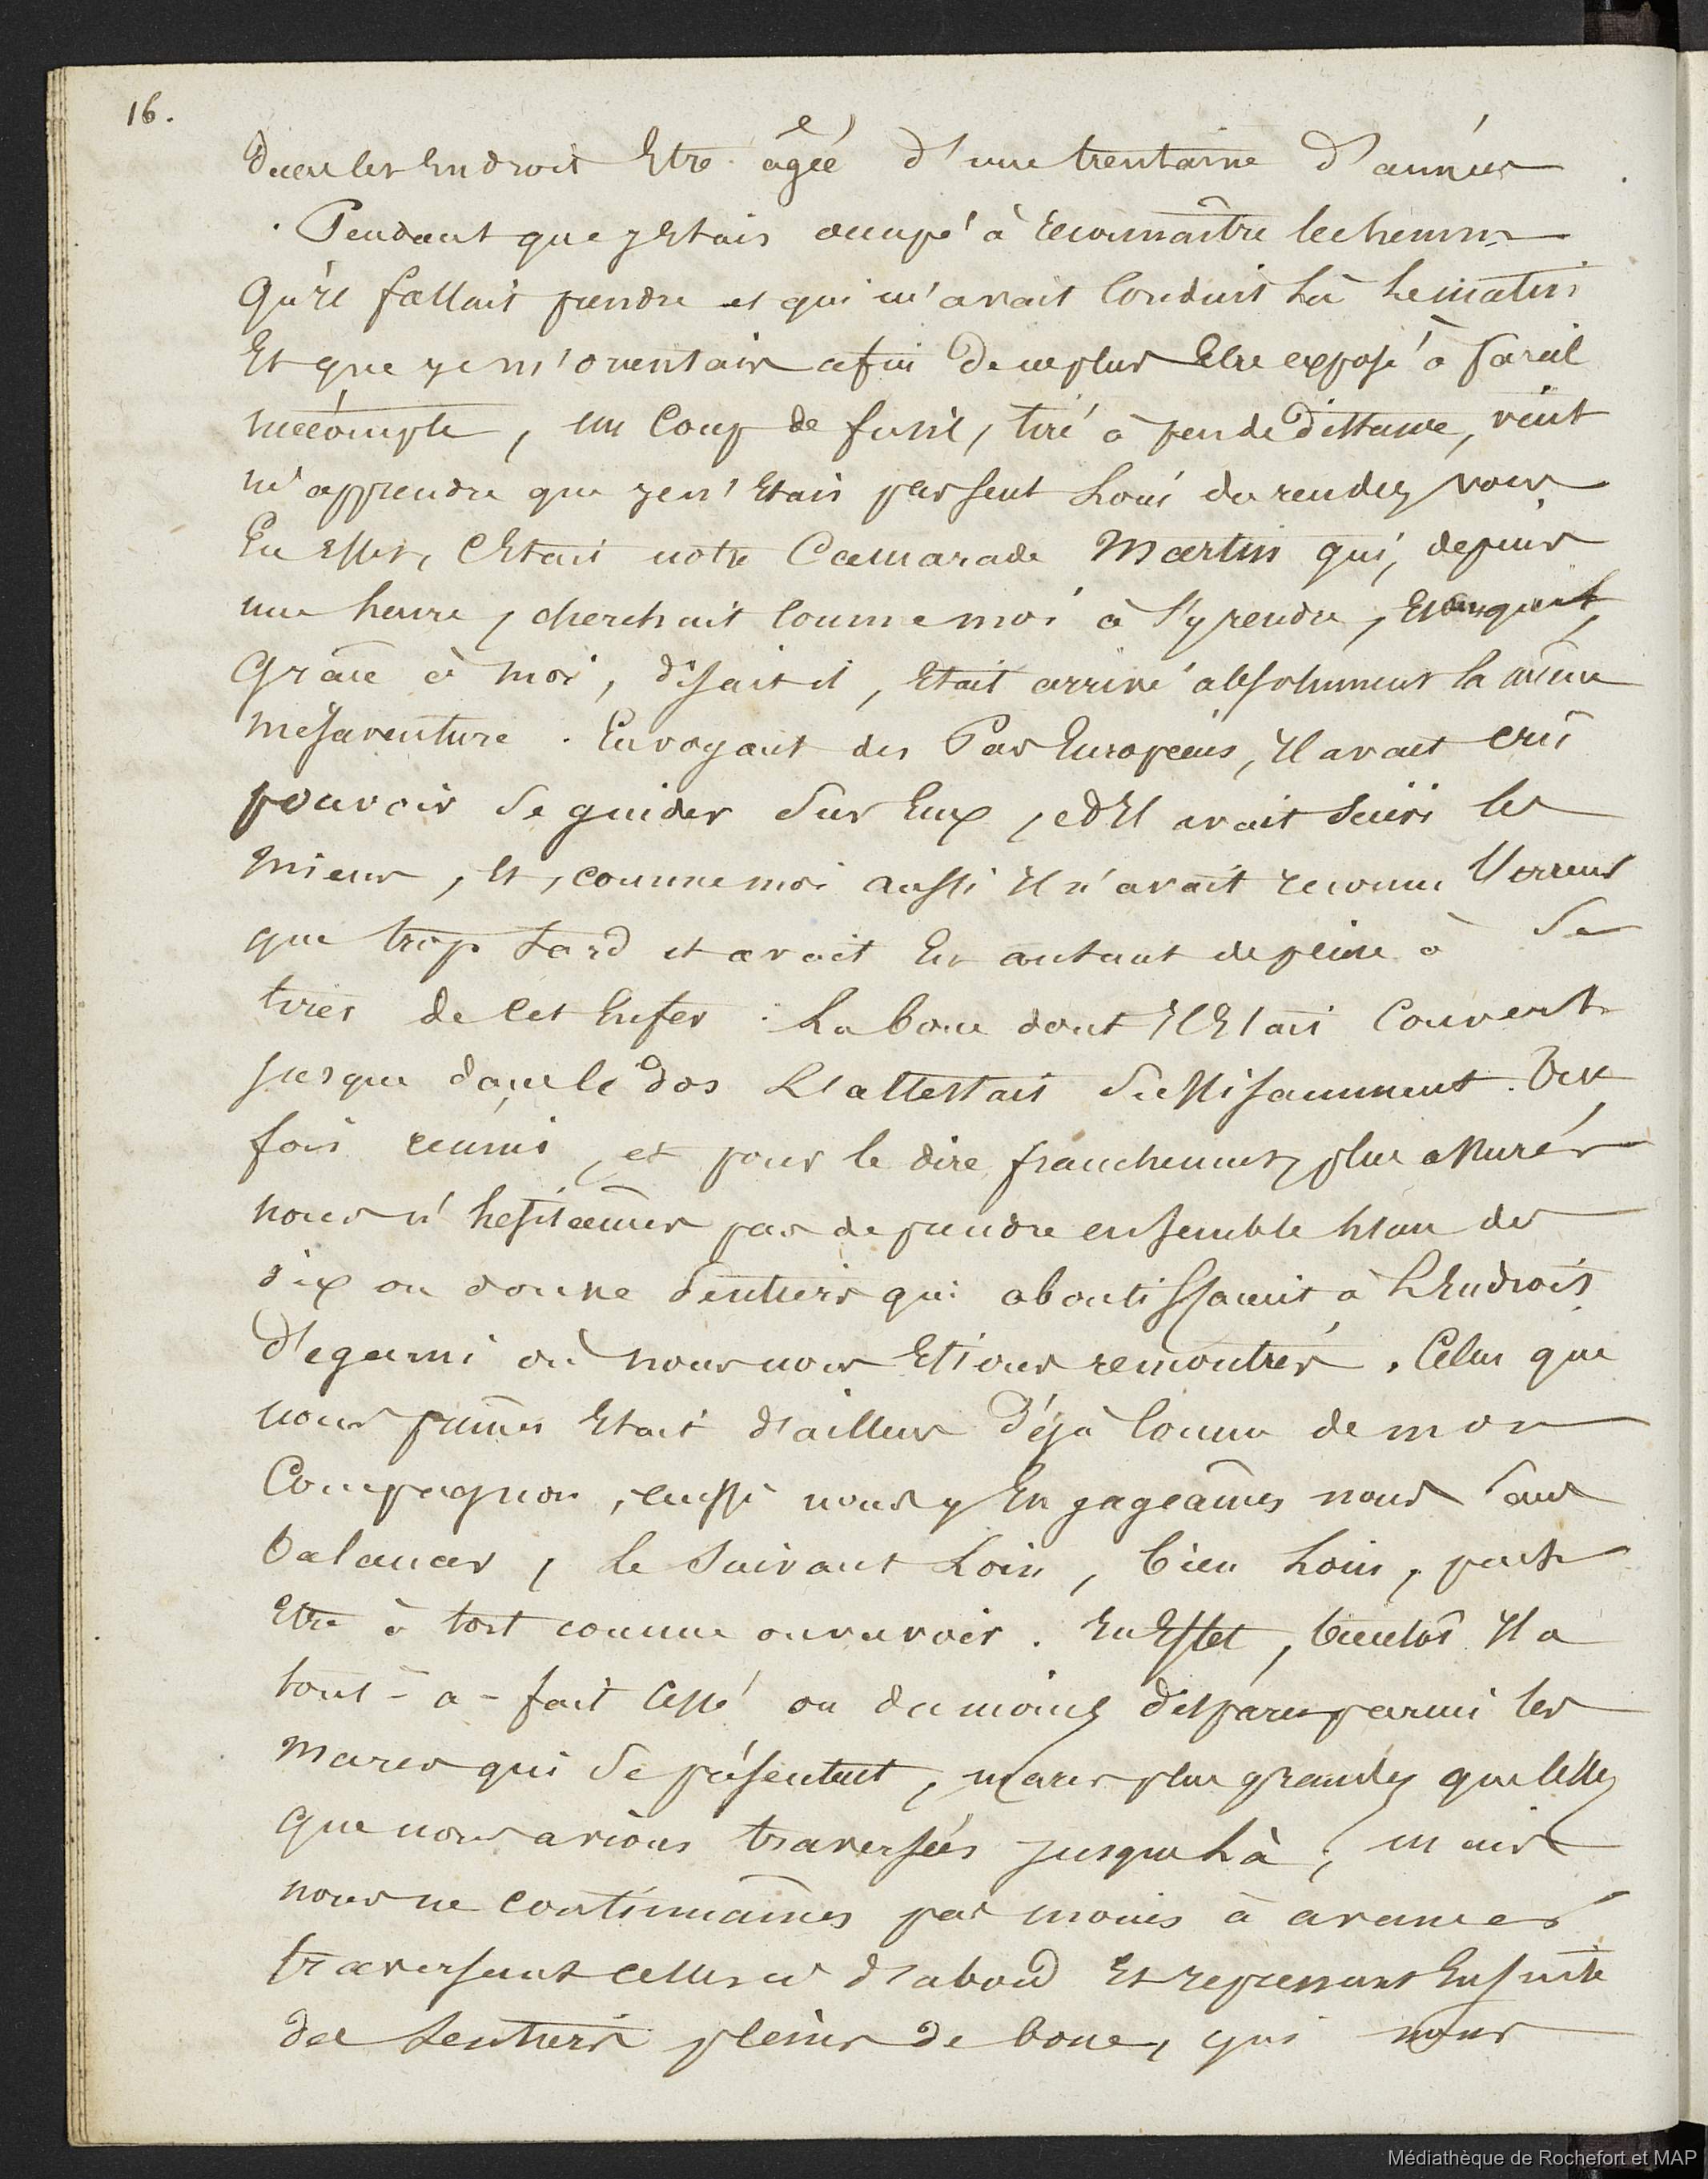 16.
dans les endroit Etre âgéé d'une trentaine d'années
. Pendant que j'Etais occupé à reconnaître le chemin
Qu'il fallait prendre et qui m'avait Conduit Là Le matin
Et que je m'orientais afin de ne plus Etre exposé à pareil
mécompte, un Coup de fusil, tiré à peu de distance, vint
m'apprendre que je n'Etais pas seul Loin du rendez vous
En Effet, C'Etait notre Camarade Martin qui, depuis
une heure, cherchait comme moi à s'y rendre, Et auquel,
Grâce à moi, disait il, Etait arrivé absolument la même
mesaventure. En voyant des Pas Europeens, Il avait crû
pouvoir se guider sur Eux, et Il avait suivi les
miens, Et, comme moi aussi Il n'avait reconnu l'erreur
que trop tard et avait Eu autant de peine à se
tirer de cet Enfer. La boue dont Il Etait Couvert
jusque dans le dos L'attestait suffisamment. Une
fois reunis, et pour le dire franchement, plus assurés
nous n'hesitâmes pas de prendre ensemble l'un des
dix ou douze sentiers qui aboutissaient à L'Endroit
degarni où nous nous Etions rencontrés. Celui que
nous prîmes Etait d'ailleurs déjà Connu de mon
Compagnon, aussi nous y Engageâmes nous sans
balancer, Le suivant Loin, bien Loin, peut
Etre à tort comme on va voir. En Effet, bientôt Il a
tout-à-fait Cessé ou du moins disparu parmi les
mares qui se présentent, mares plus grandes que celles
que nous avions traversées jusque Là; mais
nous ne continuâmes pas moins à avancer
traversant celles ci d'abord Et reprenant Ensuite
des sentiers pleins de boue, qui nous
Médiathèque de Rochefort et MAP